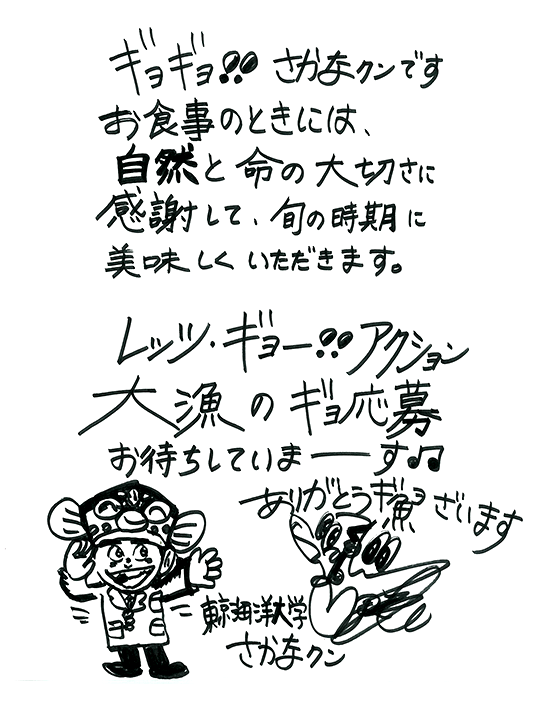 ギョギョ!! さかなクンです
お食事のときには、
自然と命の大切さに
感謝して、旬の時期に
美味しくいただきます。
レッツ・ギョー!! アクション
大漁のギョ応募
お待ちしていまーす♫
ありがとうギ魚ョざいます
東京海洋大学
さかなクン